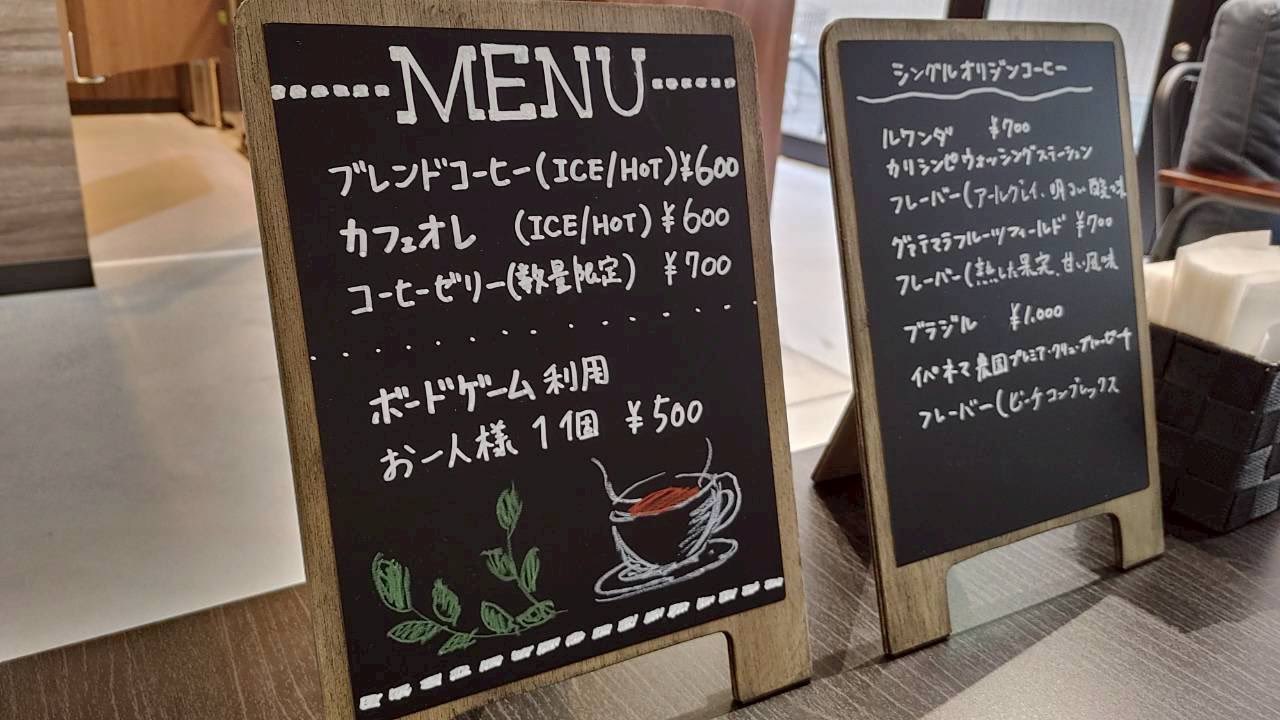 MENU
ブレンドコーヒー(ICE/HOT)¥600
カフェオレ (ICE/HOT)¥600
コーヒーゼリー(数量限定) ¥700
ボードゲーム利用
お一人様 1個 ¥500
シングルオリジンコーヒー
ルワンダ ¥700
カリシンビウォッシングステーション
フレーバー(アールグレイ、明るい酸味
グァテマラフルーツフィールド ¥700
フレーバー(熟した果実、甘い風味
ブラジル ¥1.000
イパネマ農園プレミア・クリュ・
フレーバー(ピーチコンプレックス